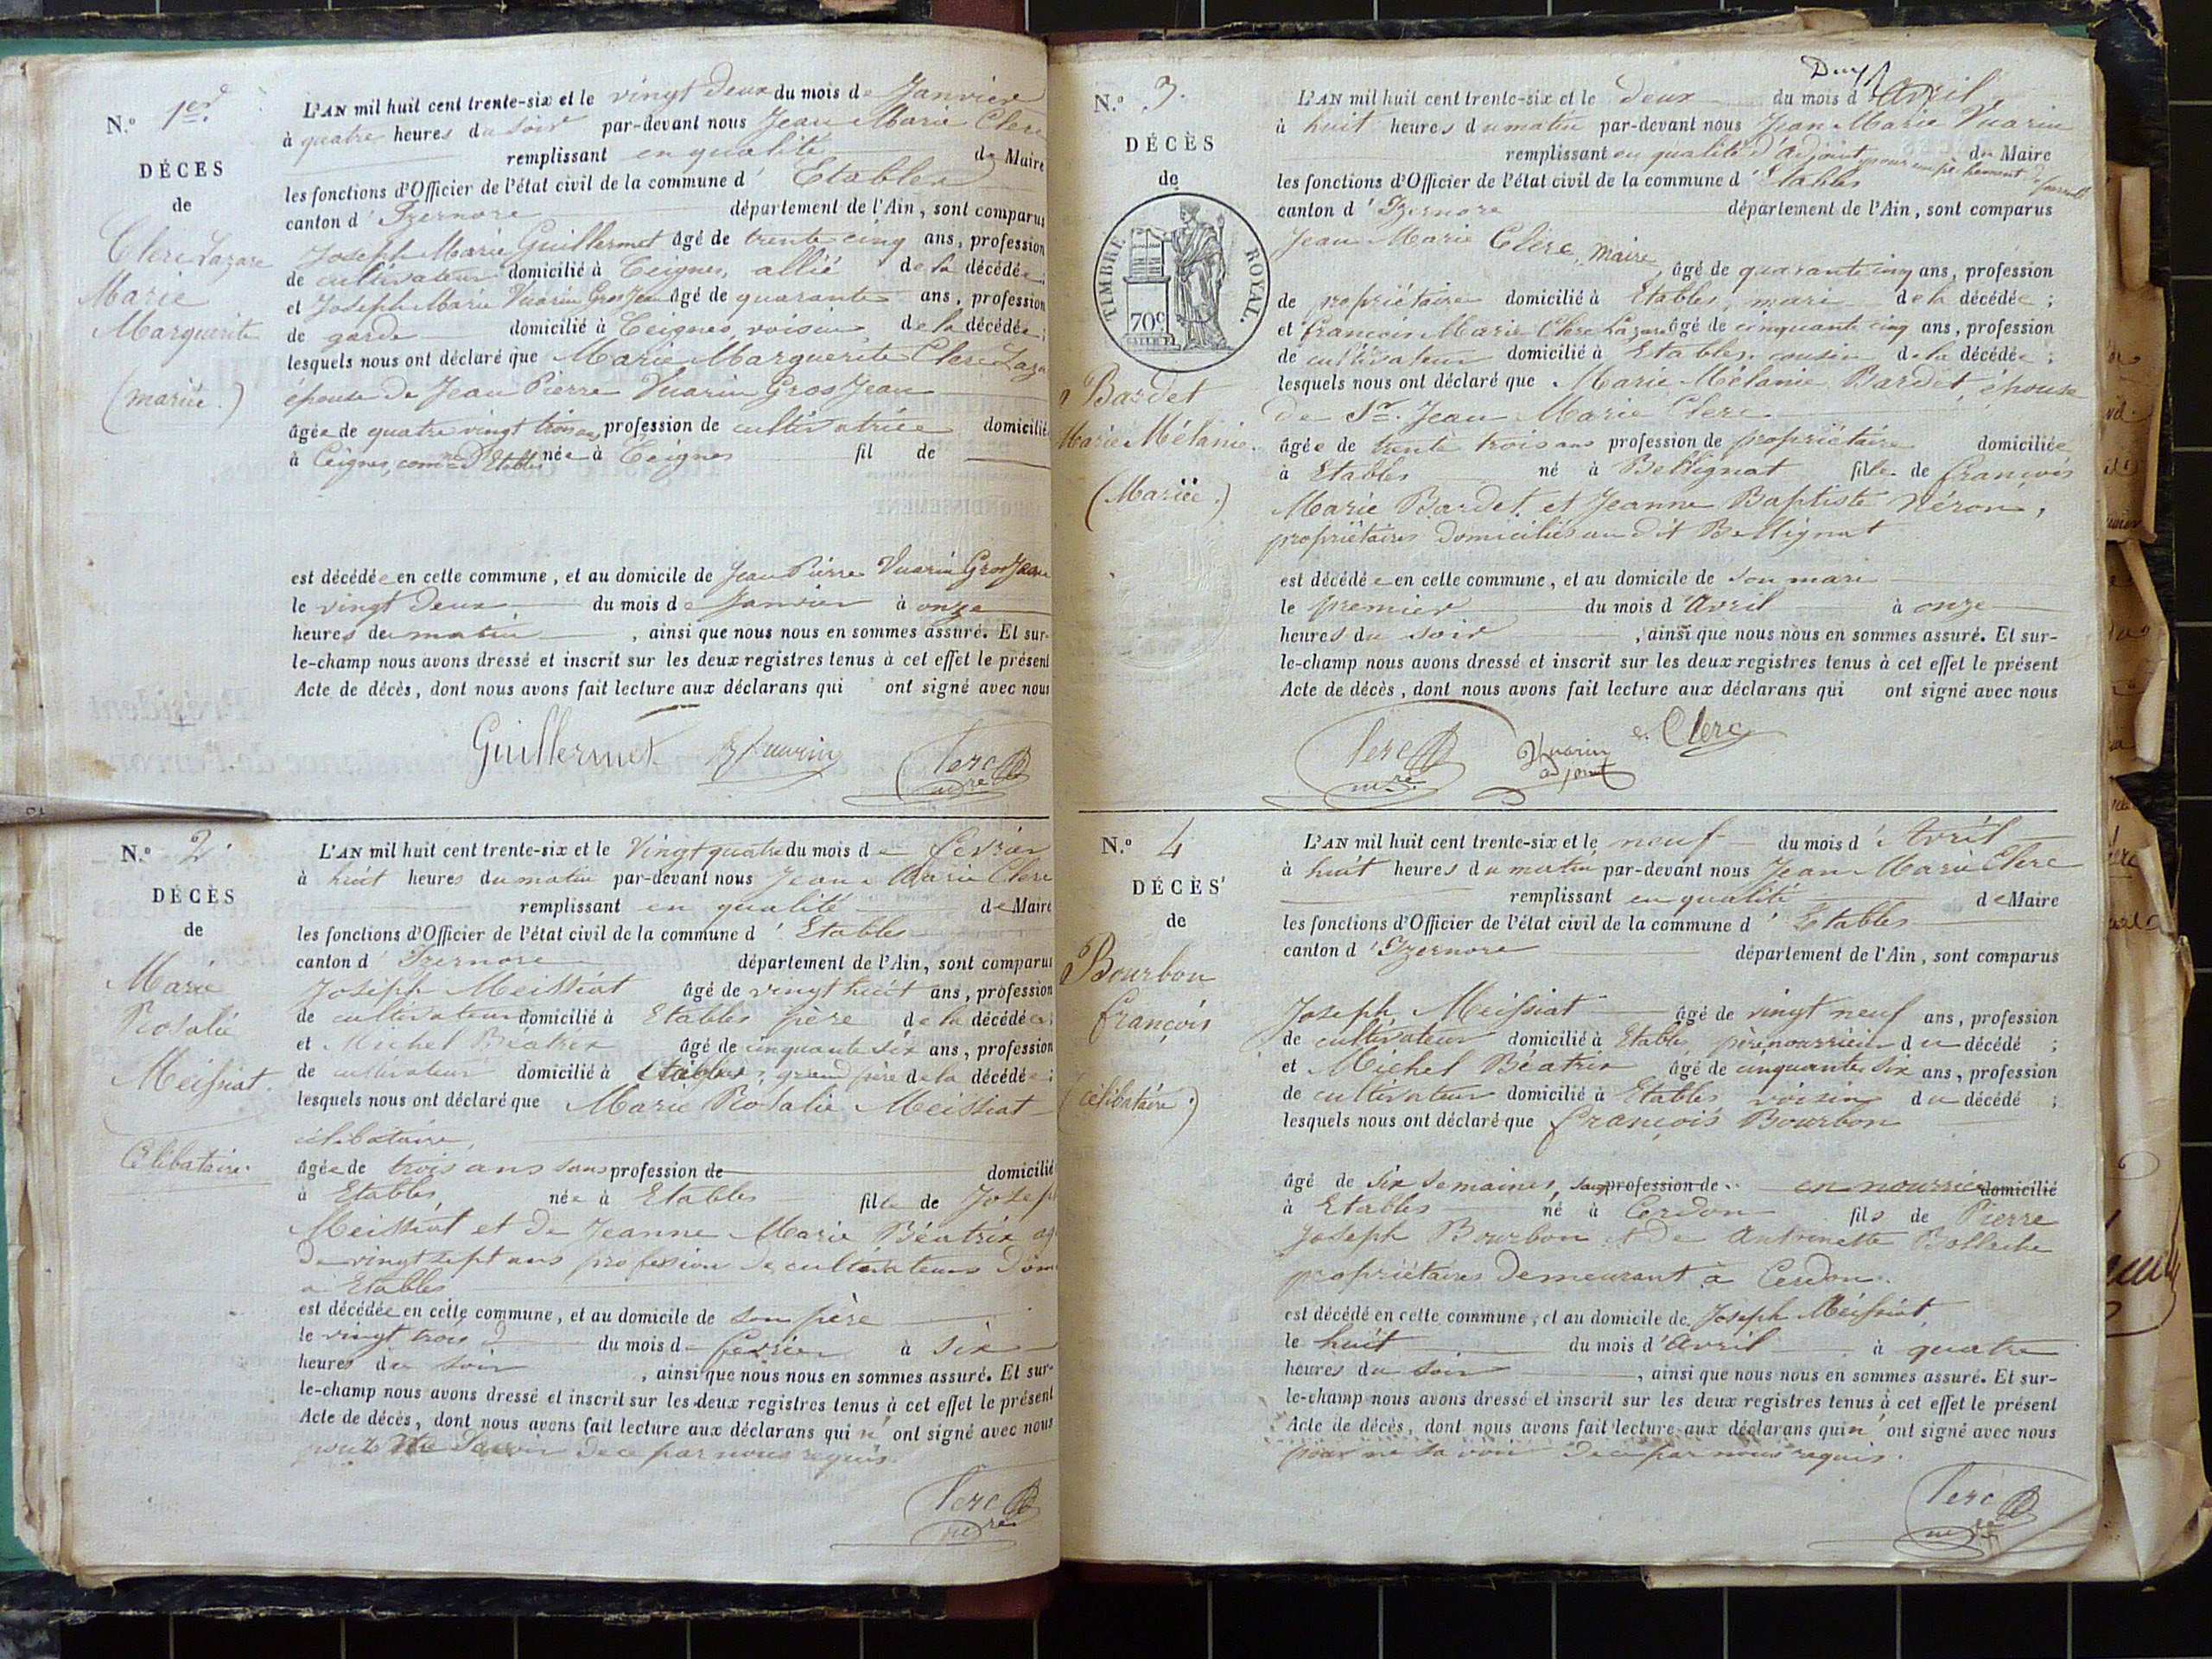 N.º 1er.
DÉCES
de
Clerc Lazare
Marie
Marguerite
(mariée.)
L'AN mil huit cent trente-six et le vingt deux du mois de Janvier
à quatre heures du soir par-devant nous Jean Marie Clerc
remplissant en qualité de Maire
les fonctions d'Officier de l'état civil de la commune d' Etables
canton d' Izernore département de l'Ain, sont comparus
Joseph Marie Guillermet âgé de trente cinq ans, profession
de cultivateur domicilié à Ceignes, allié de la décédée;
et Joseph Marie Vuarin Gros Jean âgé de quarante ans, profession
de garde domicilié à Ceignes, voisin de la décédée;
lesquels nous ont déclaré que Marie Marguerite Clerc Laza
épouse de Jean Pierre Vuarin Gros Jean
âgée de quatre vingt trois ans profession de cultivatrice domicilié
à Ceignes, comne d'Etables née à Ceignes fil de
est décédée en cette commune, et au domicile de Jean Pierre Vuarin Gros Jean
le vingt deux du mois de Janvier à onze
heures du matin, ainsi que nous nous en sommes assuré. Et sur-
le-champ nous avons dressé et inscrit sur les deux registres tenus à cet effet le présent
Acte de décès, dont nous avons fait lecture aux déclarans qui ont signé avec nous
Guillermet Vuarin Clerc
mre
N.º 2.
DÉCÈS
de
Marie
Rosalie
Meissiat.
Célibataire.
L'AN mil huit cent trente-six et le Vingt quatre du mois de fevrier
à huit heures du matin par-devant nous Jean Marie Clerc
remplissant en qualité de Maire
les fonctions d'Officier de l'état civil de la commune d' Etables
canton d' Izernore département de l'Ain, sont comparus
Joseph Meissiat âgé de vingt huit ans, profession
de cultivateur domicilié à Etables père de la décédée;
et Michel Béatrix âgé de cinquante six ans, profession
de cultivateur domicilié à Etables, grand père de la décédée;
lesquels nous ont déclaré que Marie Rosalie Meissiat
célibataire,
âgée de trois ans sans profession de domicilié
à Etables, née à Etables fille de Joseph
Meissiat et de Jeanne Marie Béatrix ag
de vingt sept ans profession de cultivateurs dom
à Etables
est décédée en cette commune, et au domicile de son père
le vingt trois du mois de fevrier à six
heures du soir, ainsi que nous nous en sommes assuré. Et sur-
le-champ nous avons dressé et inscrit sur les deux registres tenus à cet effet le présent
Acte de décès, dont nous avons fait lecture aux déclarans qui n'ont signé avec nous
pour ne savoir de ce par nous requis.
Clerc
mre
N.º 3.
DÉCÈS
de
TIMBRE ROYAL.
70c
Bardet
Marie Mélanie.
(Mariée.)
L'AN mil huit cent trente-six et le deux du mois d'Avril
à huit heures du matin par-devant nous Jean Marie Vuarin
remplissant en qualité d'adjoint pour empêchement du Maire
les fonctions d'Officier de l'état civil de la commune d'Etables
canton d'Izernore département de l'Ain, sont comparus
Jean Marie Clerc, Maire, âgé de quarante cinq ans, profession
de propriétaire domicilié à Etables, mari de la décédée;
et françois Marie Clerc Lazare âgé de cinquante cinq ans, profession
de cultivateur domicilié à Etables, cousin de la décédée;
lesquels nous ont déclaré que Marie Mélanie Bardet, épouse
de Sr. Jean Marie Clerc
âgée de trente trois ans profession de propriétaire domiciliée
à Etables né à Bellignat fille de françois
Marie Bardet et Jeanne Baptiste Néron,
propriétaires domiciliés au dit Bellignat
est décédée en cette commune, et au domicile de son mari
le premier du mois d'Avril à onze
heures du soir, ainsi que nous nous en sommes assuré. Et sur-
le-champ nous avons dressé et inscrit sur les deux registres tenus à cet effet le présent
Acte de décès, dont nous avons fait lecture aux déclarans qui ont signé avec nous
Clerc mre. Vuarin adjoint Clerc
N.º 4
DÉCÈS
de
Bourbon
françois
(célibataire.)
L'AN mil huit cent trente-six et le neuf du mois d'Avril
à huit heures du matin par-devant nous Jean Marie Clerc
remplissant en qualité de Maire
les fonctions d'Officier de l'état civil de la commune d'Etables
canton d'Izernore département de l'Ain, sont comparus
Joseph Meissiat âgé de vingt neuf ans, profession
de cultivateur domicilié à Etables, père nourricier du décédé;
et Michel Béatrix âgé de cinquante six ans, profession
de cultivateur domicilié à Etables voisin du décédé;
lesquels nous ont déclaré que françois Bourbon
âgé de six semaines, sans profession de en nourrice domicilié
à Etables né à Cerdon fils de Pierre
Joseph Bourbon et de Antoinette
propriétaires demeurant à Cerdon.
est décédé en cette commune, et au domicile de Joseph Meissiat
le huit du mois d'Avril à quatre
heures du soir, ainsi que nous nous en sommes assuré. Et sur-
le-champ nous avons dressé et inscrit sur les deux registres tenus à cet effet le présent
Acte de décès, dont nous avons fait lecture aux déclarans qui n'ont signé avec nous
pour ne savoir de ce par nous requis.
Clerc
mre